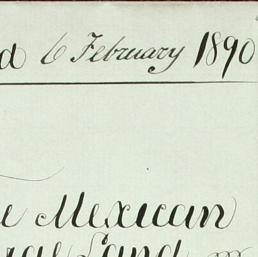 d 6 February 1890
e Mexican
Land